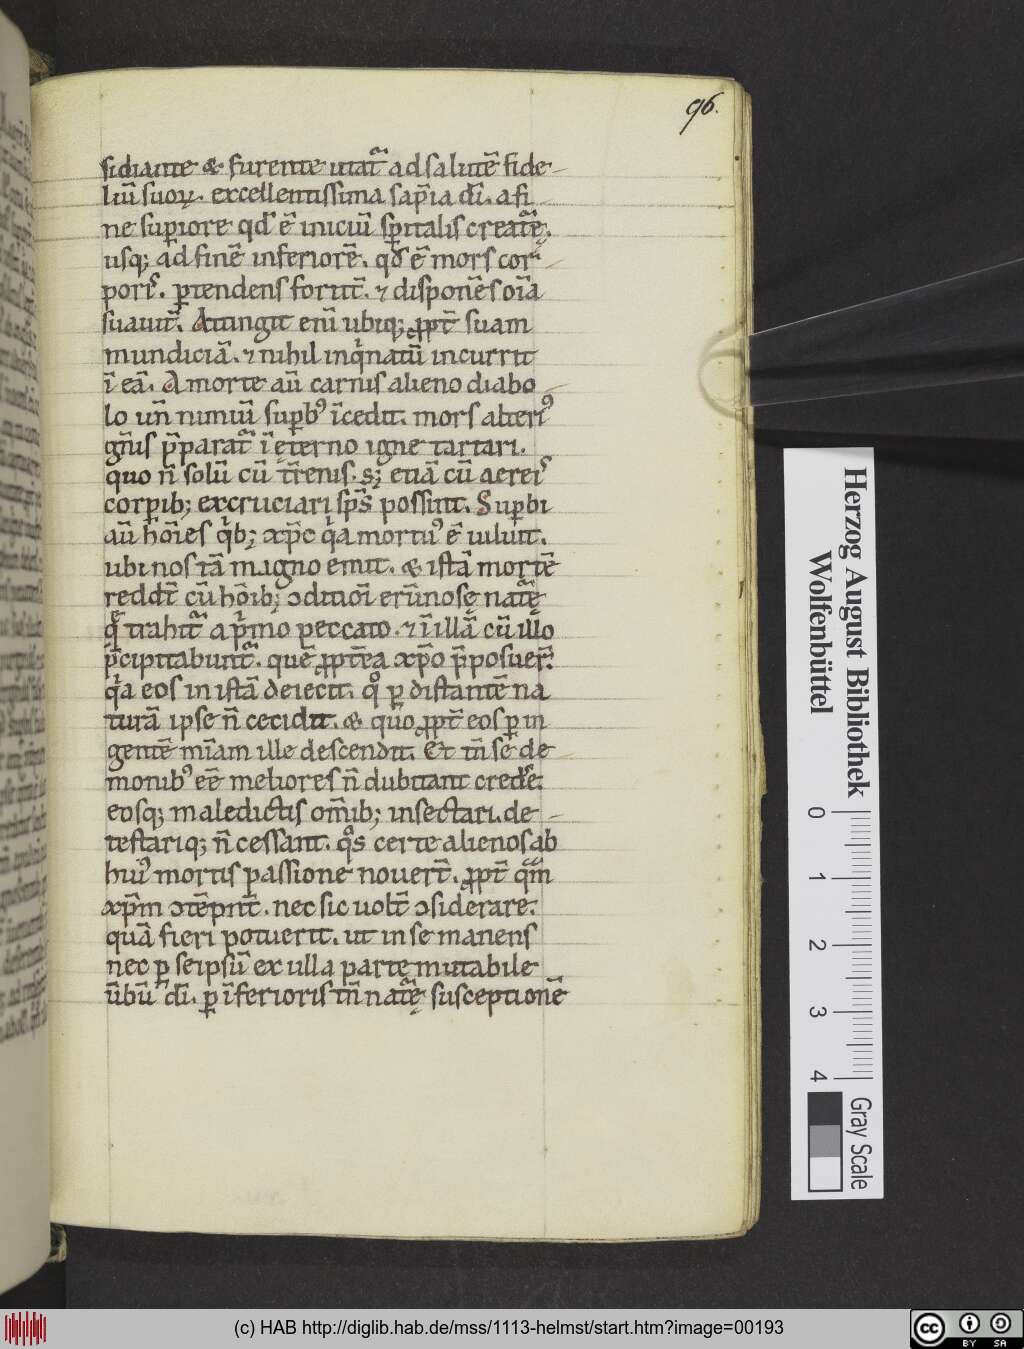 96.
sidiante & furente utat᷑ ad salutē fide-
liū suoꝝ. excellentissima sap̄ia dī. a fi-
ne supiore qd' ē iniciū sp̄italis creat᷑ę.
usq; ad finē inferiorē. qd' ē mors cor-
poris. ꝑtendens fortit̄. ⁊ disponēs oīa
suauit̄. Attingit enī ubiq; ꝓpt̄ suam
mundiciā. ⁊ nihil inqͥnatū incurrit
ī eā. A morte aū carnis alieno diabo-
lo un̄ nimiū suꝑb᾿ īcedit. mors alteri᾿
gn̄is p̄parat᷑ ī ęterno igne tartari.
quo n̄ solū cū t̄renis. s; etiā cū aereis
corꝑib; excruciari sp̄s possint. Suꝑbi
aū hōies qͥb; xp̄c qͥa mortu᾿ ē uiluit.
ubi nos tā magno emit. & istā mortē
reddt̄ cū hōib; ꝯditiōi erūnosę nat᷑ę
q̨̄ trahit᷑ a pͥmo peccato. ⁊ ī illā cū illo
p̄cipitabunt᷑. quē ꝓpt̄ea xp̄o p̄posuer̄.
qͥa eos in istā deiecit. qͦ ꝑ distantē na
turā ipse n̄ cecidit. & quō ꝓpt̄ eos ꝑ in
gentē mīam ille descendit. Et tn̄ se de
monib᾿ eē meliores n̄ dubitant credͤe.
eosq; maledictis om̄ib; insectari. de-
testariq; n̄ cessant. qͦs certe alienos ab
hui᾿ mortis passione nouert̄. ꝓpt̄ qᷓm
xp̄m ꝯtēpnt̄. nec sic uolt̄ ꝯsiderare.
quā fieri potuerit. ut in se manens
nec ꝑ seipsū ex ulla parte mutabile
ūbū dī. ꝑ īferioris tn̄ nat᷑ę susceptionē
Herzog August Bibliothek
Wolfenbüttel
0 1 2 3 4
Gray Scale
(c) HAB http://diglib.hab.de/mss/1113-helmst/start.htm?image=00193
cc BY SA